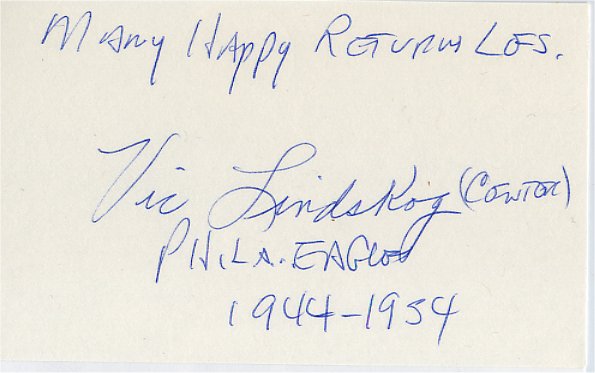 Many Happy Returns Les.
Vic Lindskog (Center)
Phila. Eagles
1944-1954